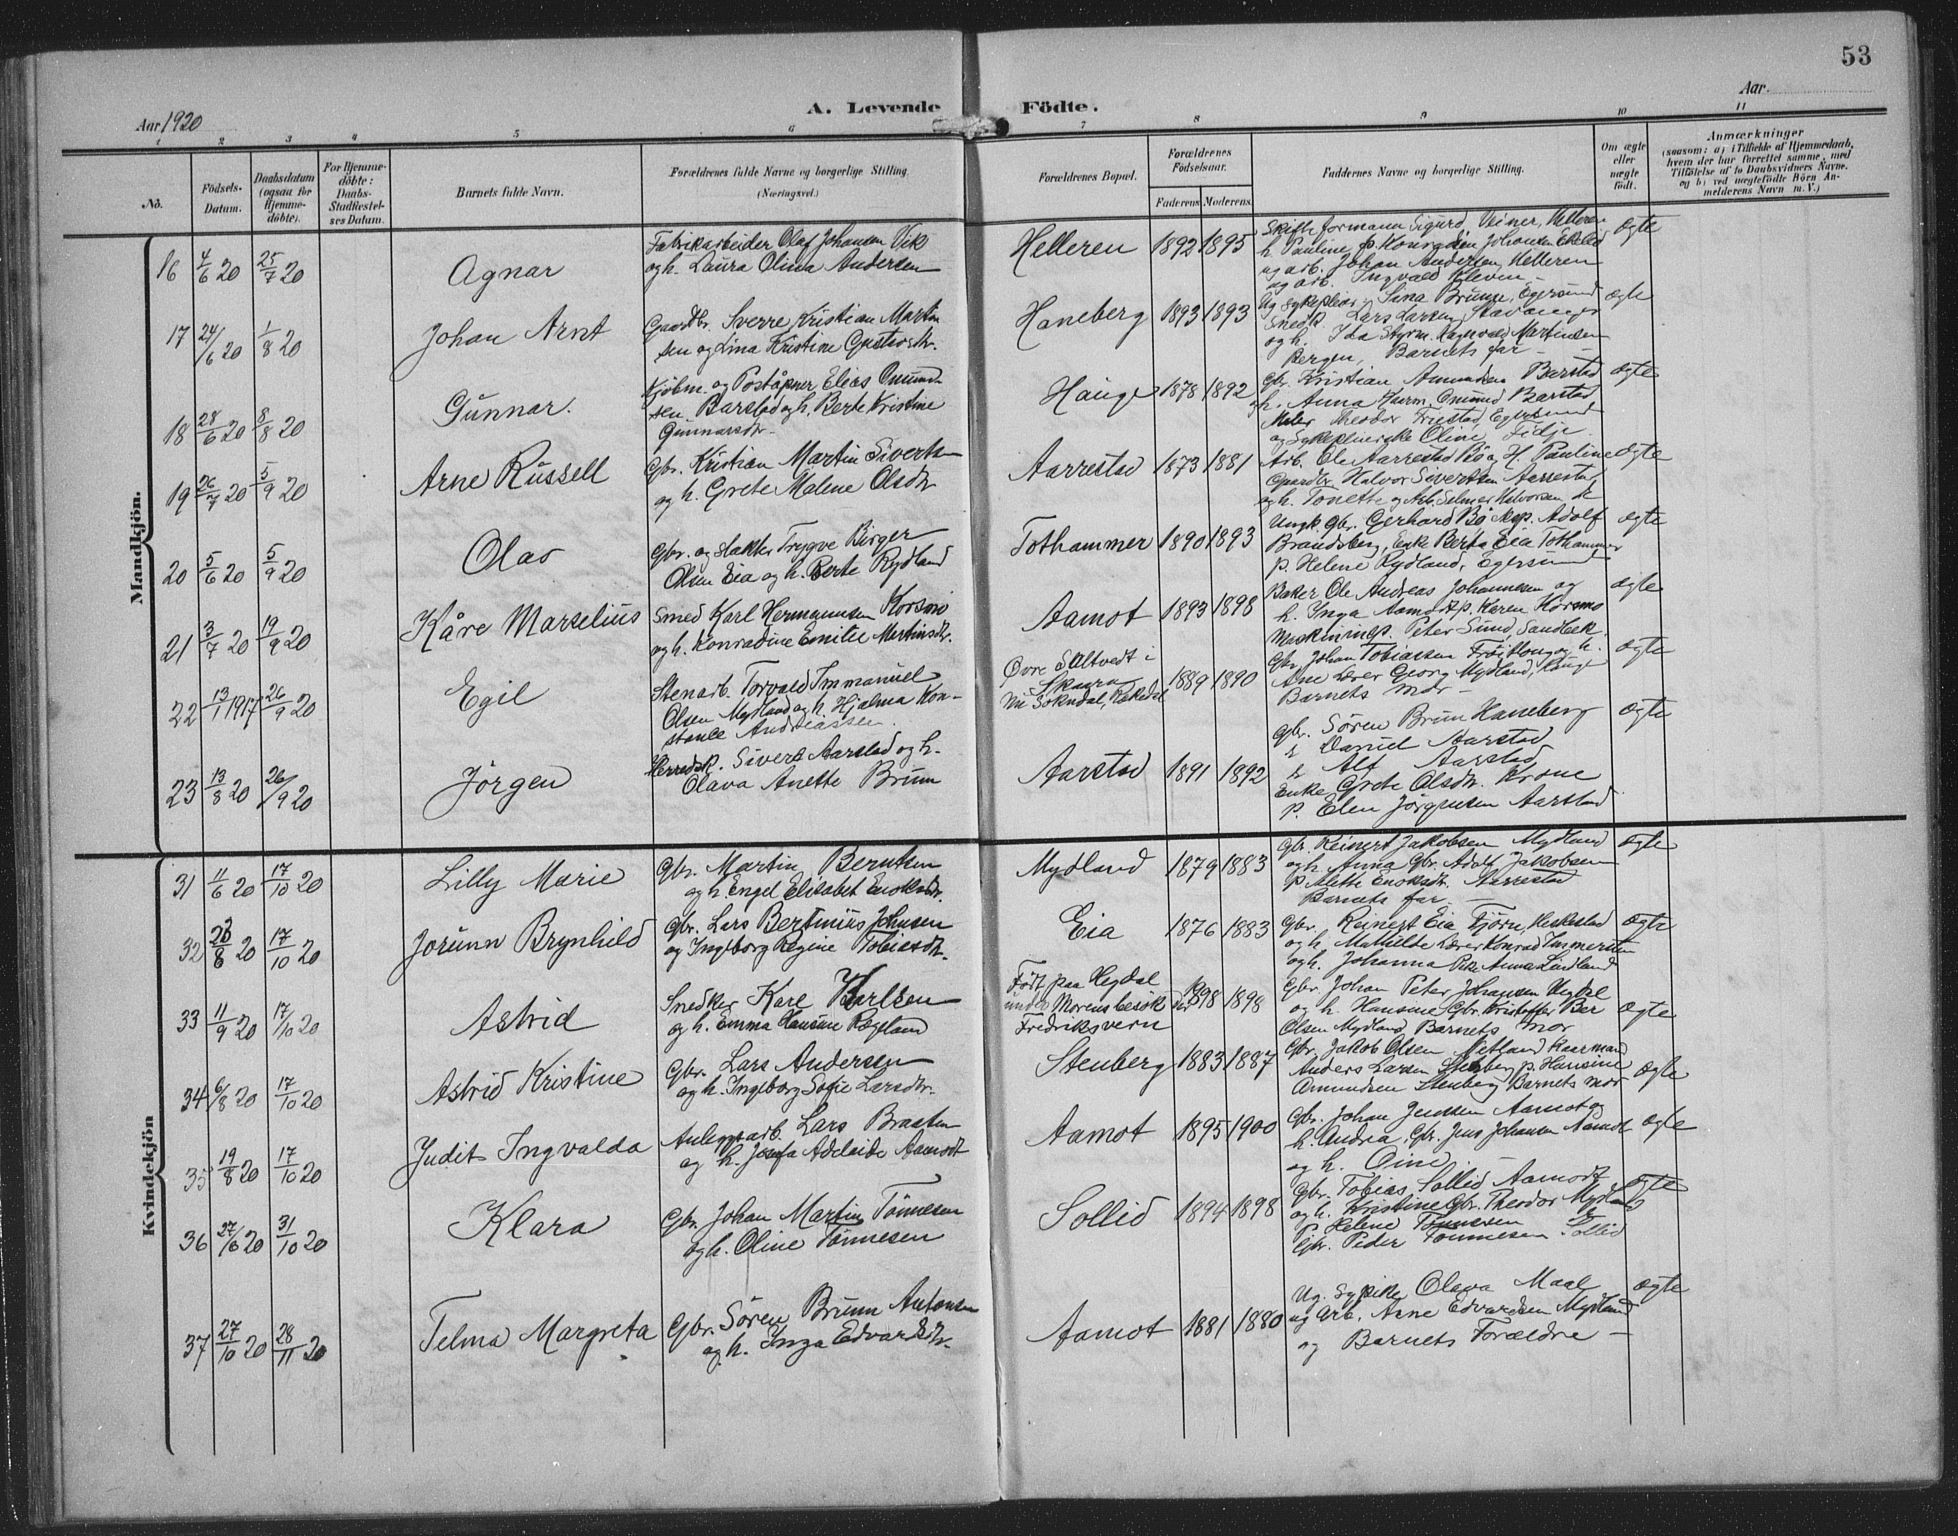 53
Aar 1920
A. Levende Födte.
Aar
1 2 3 4 5 6 7 8 9 10 11
No.
Födsels-
Datum.
Daabsdatum
(ogsaa for
Hjemme-
döbte).
For Hjemme-
döbte:
Daabs-
Stadfestel-
ses Datum.
Barnets fulde Navn.
Forældrenes fulde Navne og borgerlige Stilling.
(Næringsvei.)
Forældrenes Bopæl.
Forældrenes
Födselsaar.
Faderens Moderens
Faddernes Navne og borgerlige Stilling.
Om ægte
eller
uægte
födt.
Anmærkninger
(saasom: a) i Tilfælde af Hjemmedaab,
hvem der har forrettet samme, med
Tilføielse af to Daabsvidners Navne.
og b) ved uægtefödte Börn An-
melderens Navn m. V.)
Mandkjön.
16 4/6 20 25/7 20 Agnar
Fabrikarbeider Olaf Johansen Vik
og h. Laura Olina Andersen
Helleren 1892 1895
Skifteformann Sigurd Veiner, Helleren
h. Pauline, p. Konradine Johansen Ekeled
og arb. Johan Andersen Helleren
og arb. Ingvald Kleven
ægte
17 24/6 20 1/8 20 Johan Arnt
Gaardbr. Sverre Kristian Martin
sen og Lina Kristine Gustavsdtr.
Haneberg 1893 1893
Ug. sykepleier Sina Brunn, Egersund
Snedk. Lars Larsen, Stavanger
og h. Ida Styrm. Ragnvald Martinsen
Bergen, Barnets far
ægte
18 28/6 20 8/8 20 Gunnar.
Kjøbm. og Poståpner Elias Omund-
sen Barstad og h. Berte Kristine
Gunnarsdtr.
Hauge 1878 1892
Gbr. Kristian Amundsen Barstad
h. Anna Omund Barstad
Maler Theodor Friestad, Egersund
og Sykepleierske Oline Fidje
ægte
19 26/7 20 5/9 20 Arne Russell
Gbr. Kristian Martin Sivertsen
og h. Grete Malene Olsdtr
Aarrestad 1873 1881
Arb. Ole Aarrestad Bø og H. Pauline
Gaardbr Halvor Sivertsen Aarrestad,
og h. Tonette og Arb. Selmer Halvorsen
ægte
20 5/6 20 5/9 20 Olav
Gbr. og slakter Trygve Birger
Olsen Eia og h. Berte Rydland
Tothammer 1890 1893
Ungk. Gbr. Gerhard Bø Adolf
Brandsberg, Enke Berta Eia Tothammer
p. Helene Rydland, Egersund
ægte
21 3/7 20 19/9 20 Kåre Marselius
Smed Karl Hermannsen Korsmo
og h. Konradine Emilie Martinsdtr.
Aamot 1893 1898
Baker Ole Andreas Johannesen og
h. Inga Aamodt p. Karen Korsmo
Peter Sund, Sandbæk
ægte
22 13/1 1917 26/9 20 Egil
Stenarb. Torvald Immanuel
Olsen Mydland og h. Hjalma Kon-
stanse Andreassen
Øvre Saltvedt i
Skaara
Nu Sokndal, Rekedal 1889 1890
Gbr. Johan Tobiassen Frøitlog og h.
Ane Lærer Georg Mydland, Hauge
Barnets mor
ægte
23 13/8 20 26/9 20 Jörgen
Herredsk. Sivert Aarstad og h.
Olava Anette Brunn
Aarstad 1891 1892
Gbr. Søren Brun Haneberg
" Daniel Aarstad
" Alf Aarstad
Enke Grete Olsdtr. Krone
p. Elen Jörgensen Aarstad
ægte
Kvindekjön
31 11/6 20 17/10 20 Lilly Marie
Gbr. Martin Berntsen
og h. Engel Elisabet Enoksdtr.
Mydland 1879 1883
Gbr. Reinert Jakobsen Mydland
og h. Anna Gbr. Adolf Jakobsen
p. Alette Enoksdtr. Aarrestad
Barnets far
ægte
32 26/8 20 17/10 20 Jorunn Brynhild
Gbr. Lars Bertinius Johnsen
og Ingeborg Regine Tobiasdtr.
Eia 1876 1883
Gbr. Reinert Eia Fjørn, Heskestad
og h. Mathilde Lærer Konrad Immersten
og h. Johanna Pike Anna Lindland
ægte
33 11/9 20 17/10 20 Astrid
Snedker Kare Karlsen
og h. Emma Hansine Rægland
Født paa Hegdal
under Morens besøk
Fredriksvern 1898 1898
Gbr. Johan Peter Johansen Hegdal
og h. Hansine Gbr. Kristoffer Ber
Olsen Mydland, Barnets mor
ægte
34 6/8 20 17/10 20 Astrid Kristine
Gbr. Lars Andersen
og h. Ingeborg Sofie Larsdtr.
Stenberg 1883 1887
Gbr. Jakob Olsen Mitland
Anders Larsen Stenberg p. Hansine
Amundsen Stenberg Barnets mor
ægte
35 19/8 20 17/10 20 Judit Ingvalda
Anlegsarb. Lars Braaten
og h. Josefa Adelaide Aamodt
Aamot 1895 1900
Gbr. Johan Jenssen Aamot og
h. Andrea, Gbr. Jens Johansen Aamot
og h. Oine
ægte
36 27/6 20 31/10 20 Klara
Gbr. Johan Martin Tönnesen
og h. Oline Tönnesen
Sollid 1894 1898
Gbr. Tobias Sollid Aamodt
og h. Kristine Gbr. Theodor Mydland
p. Helene Tönnesen
Gbr. Peder Tönnesen Sollid
ægte
37 27/10 20 28/11 20 Telma Margreta
Gbr. Søren Brunn Antonsen
og h. Inga Edvardsdtr.
Aamot 1881 1880
Ug. Sypike Olava Maal
og Arb. Arne Edvardsen Mydland
og Barnets Forældre
ægte